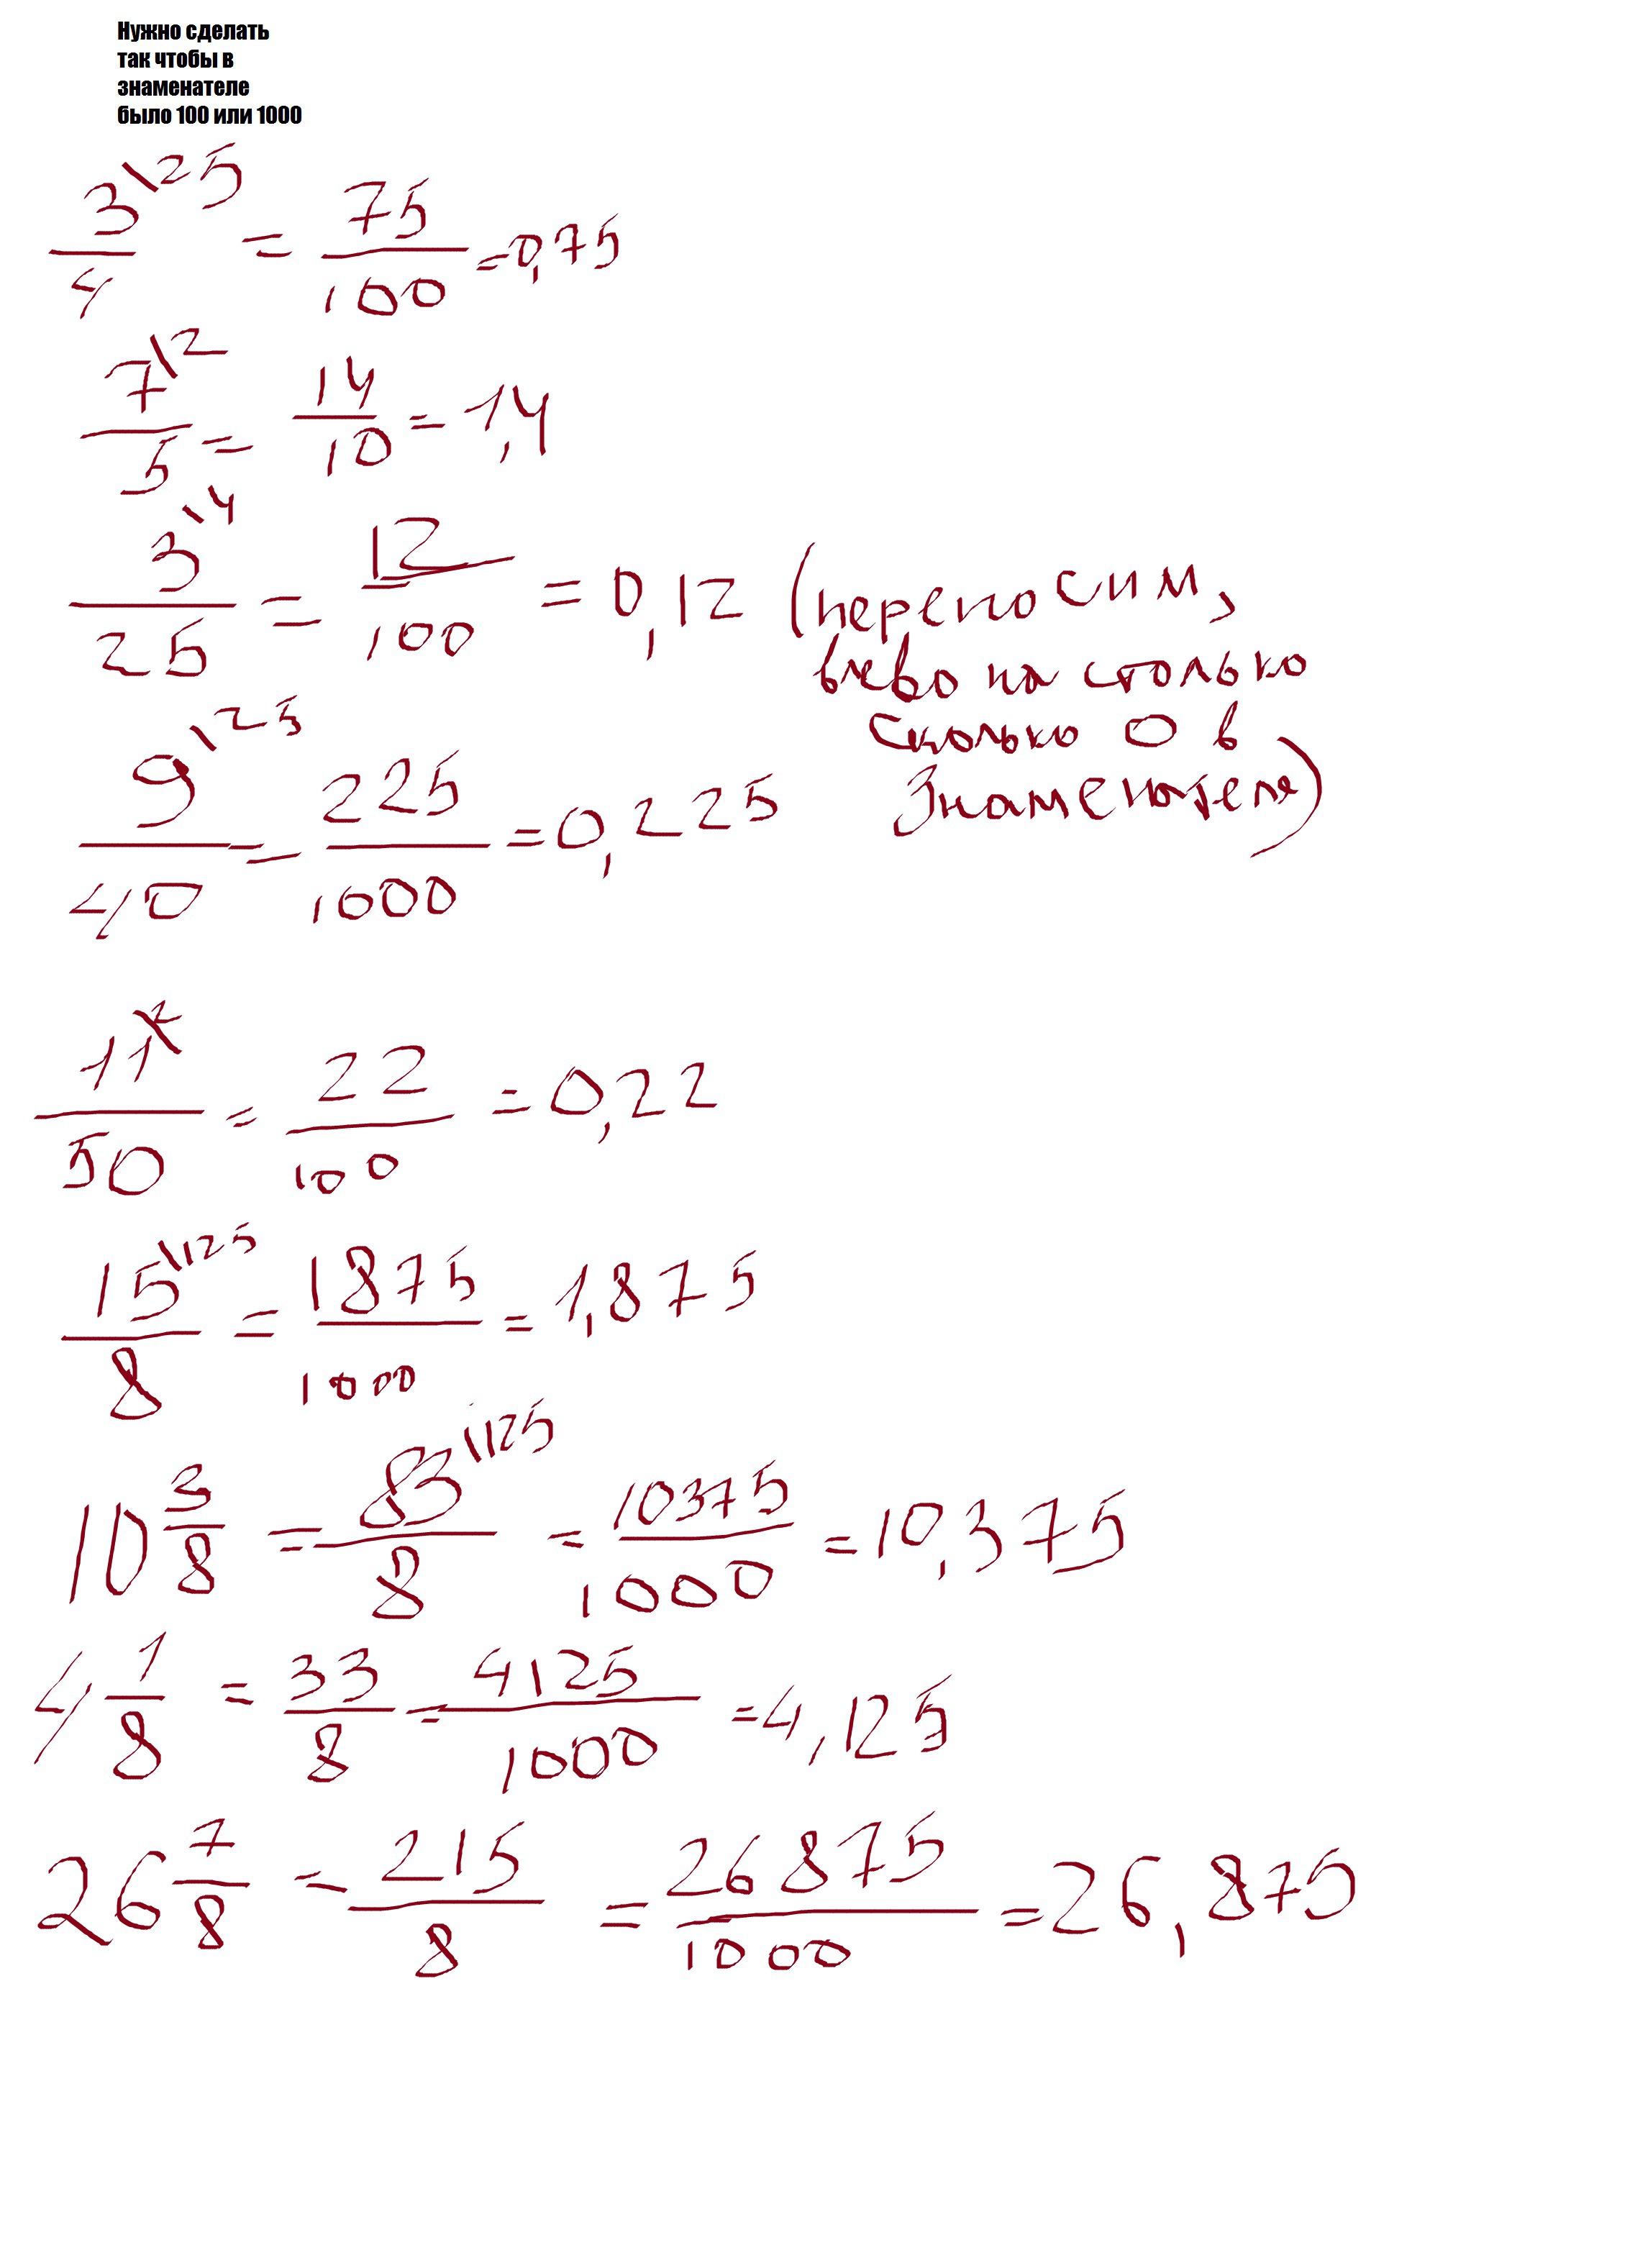 Нужно сделать
так чтобы в
знаменателе
было 100 или 1000
3\25/4 = 75/100 = 0,75
7\2/5 = 14/10 = 1,4
3\4/25 = 12/100 = 0,12 (переносим,
влево на столько
сколько 0 в
знаменателе)
9\25/40 = 225/1000 = 0,225
11\2/50 = 22/100 = 0,22
15\125/8 = 1875/1000 = 1,875
10 3/8 = 83\125/8 = 10375/1000 = 10,375
4 1/8 = 33/8 = 4125/1000 = 4,125
26 7/8 = 215/8 = 26875/1000 = 26,875